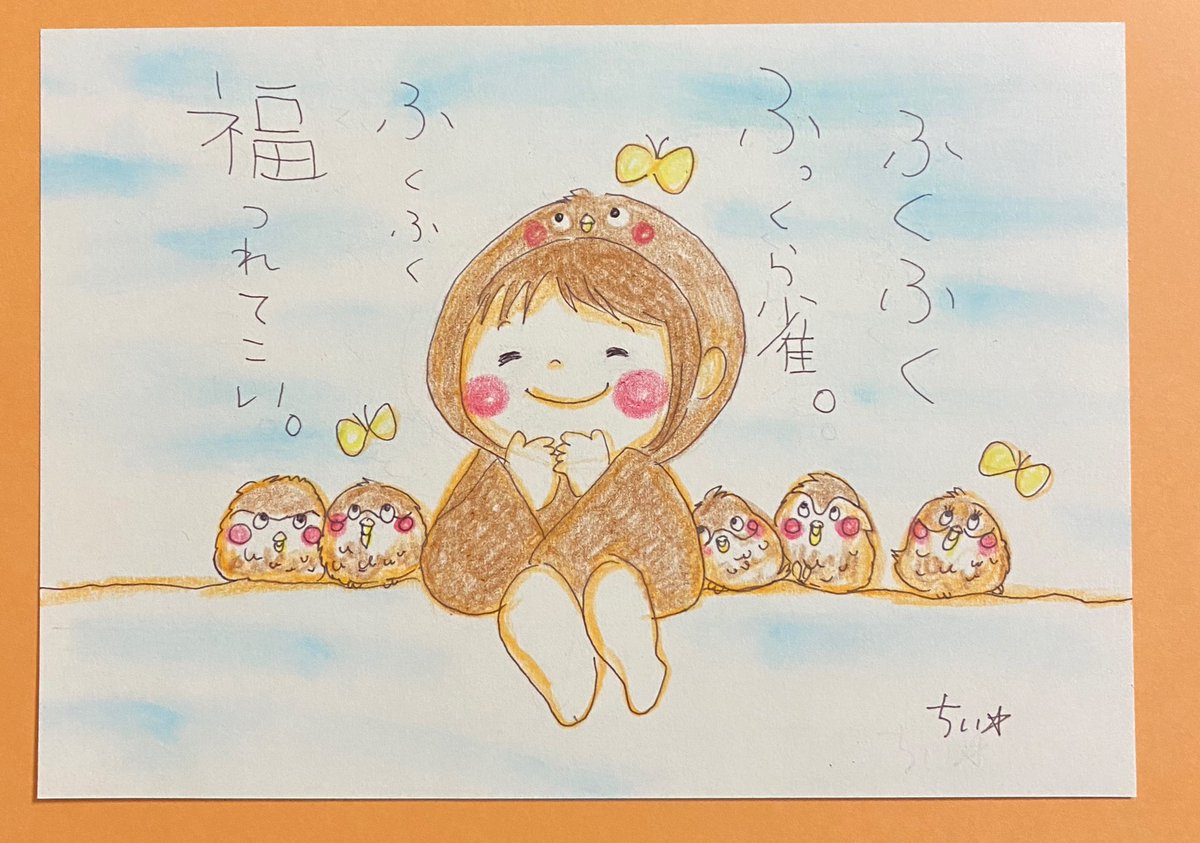 ふくふく
ふっくら雀。
ふくふく
福つれてこい。
ちい☆